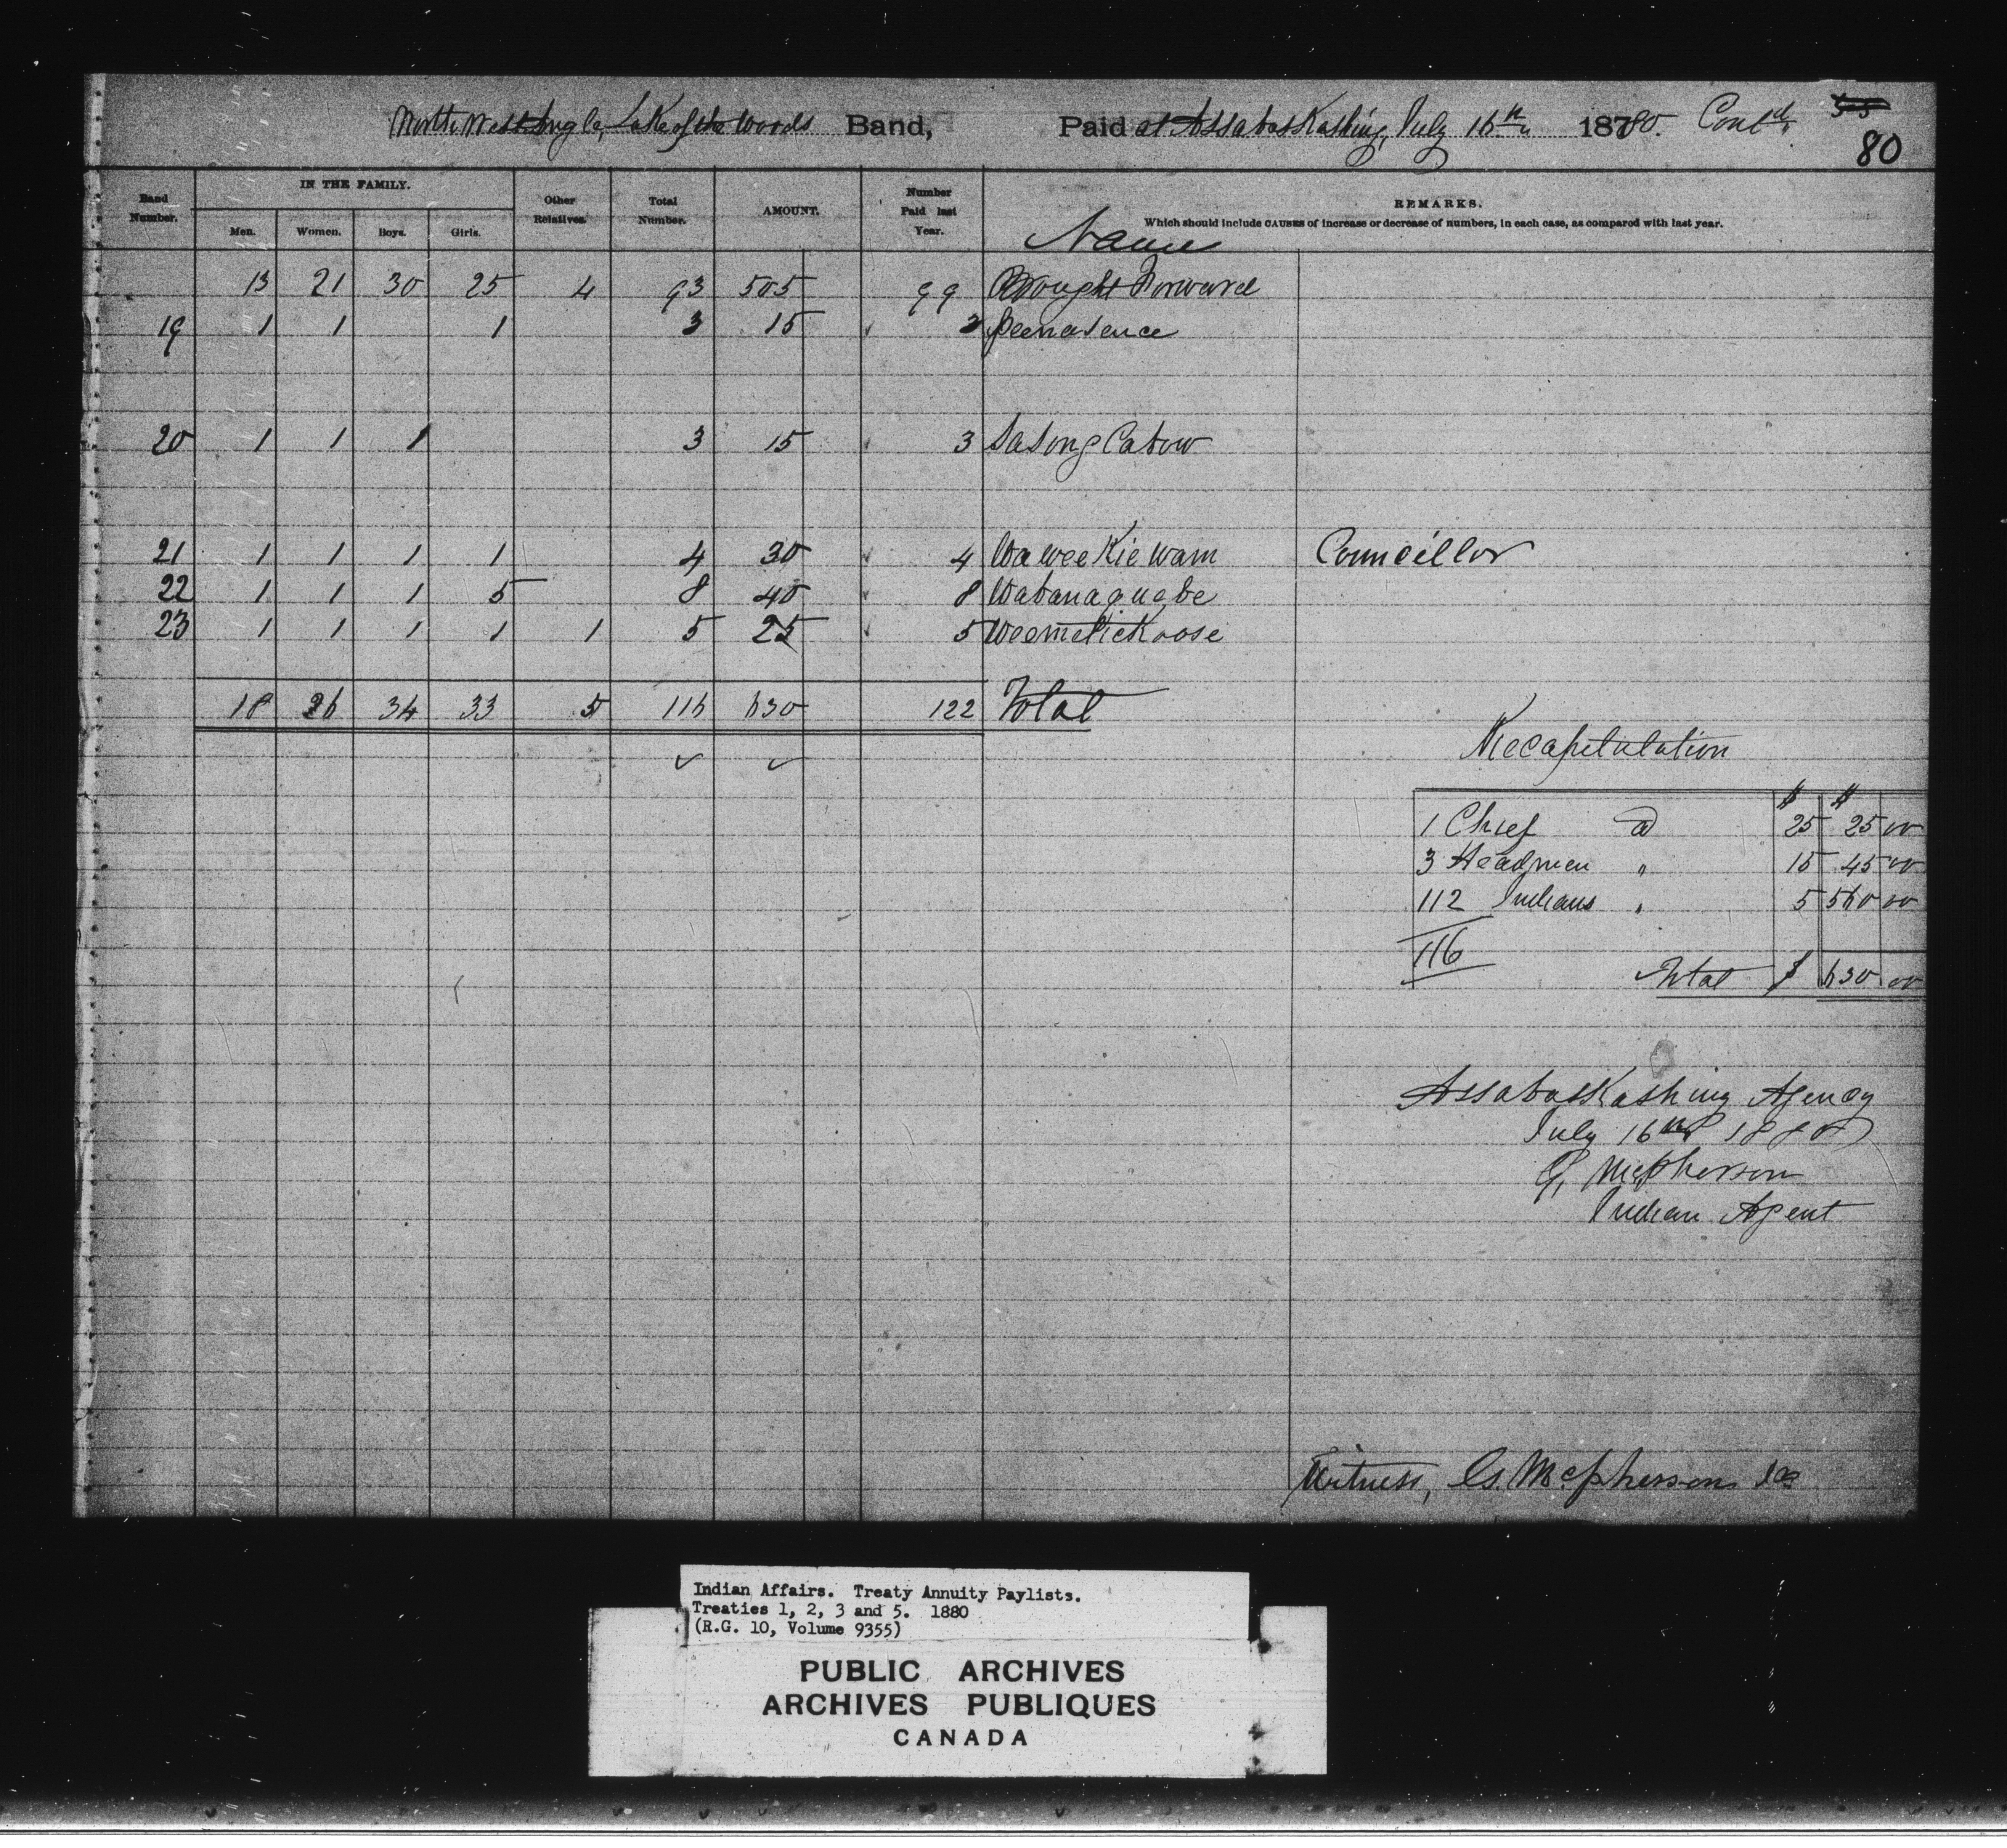 North West Angle, Lake of the Woods Band, Paid at AssabasKashing, July 16th 1880. Contd
80
Band Number. IN THE FAMILY. Men. Women. Boys. Girls. Other Relatives. Total Number. AMOUNT. Number Paid last Year. Name REMARKS.
Which should include CAUSES of increase or decrease of numbers, in each case, as compared with last year.
13 21 30 25 4 93 505 99 Brought Forward
19 1 1 1 3 15 3 Peenasence
20 1 1 1 3 15 3 Sasong Cabow
21 1 1 1 1 4 30 4 Wa wee Kie wam Councillor
22 1 1 1 5 8 40 8 Wabanaquabe
23 1 1 1 1 1 5 25 5 WeemetickOose
18 26 34 33 5 116 630 122 Total
Recapitulation
$ $
1 Chief @ 25 25 00
3 Headmen " 15 45 00
112 Indians " 5 560 00
116
Total $ 630 00
AssabasKashing Agency
July 16th 1880
G. McPherson
Indian Agent
Witness, G. McPherson
Indian Affairs. Treaty Annuity Paylists.
Treaties 1, 2, 3 and 5. 1880
(R.G. 10, Volume 9355)
PUBLIC ARCHIVES
ARCHIVES PUBLIQUES
CANADA